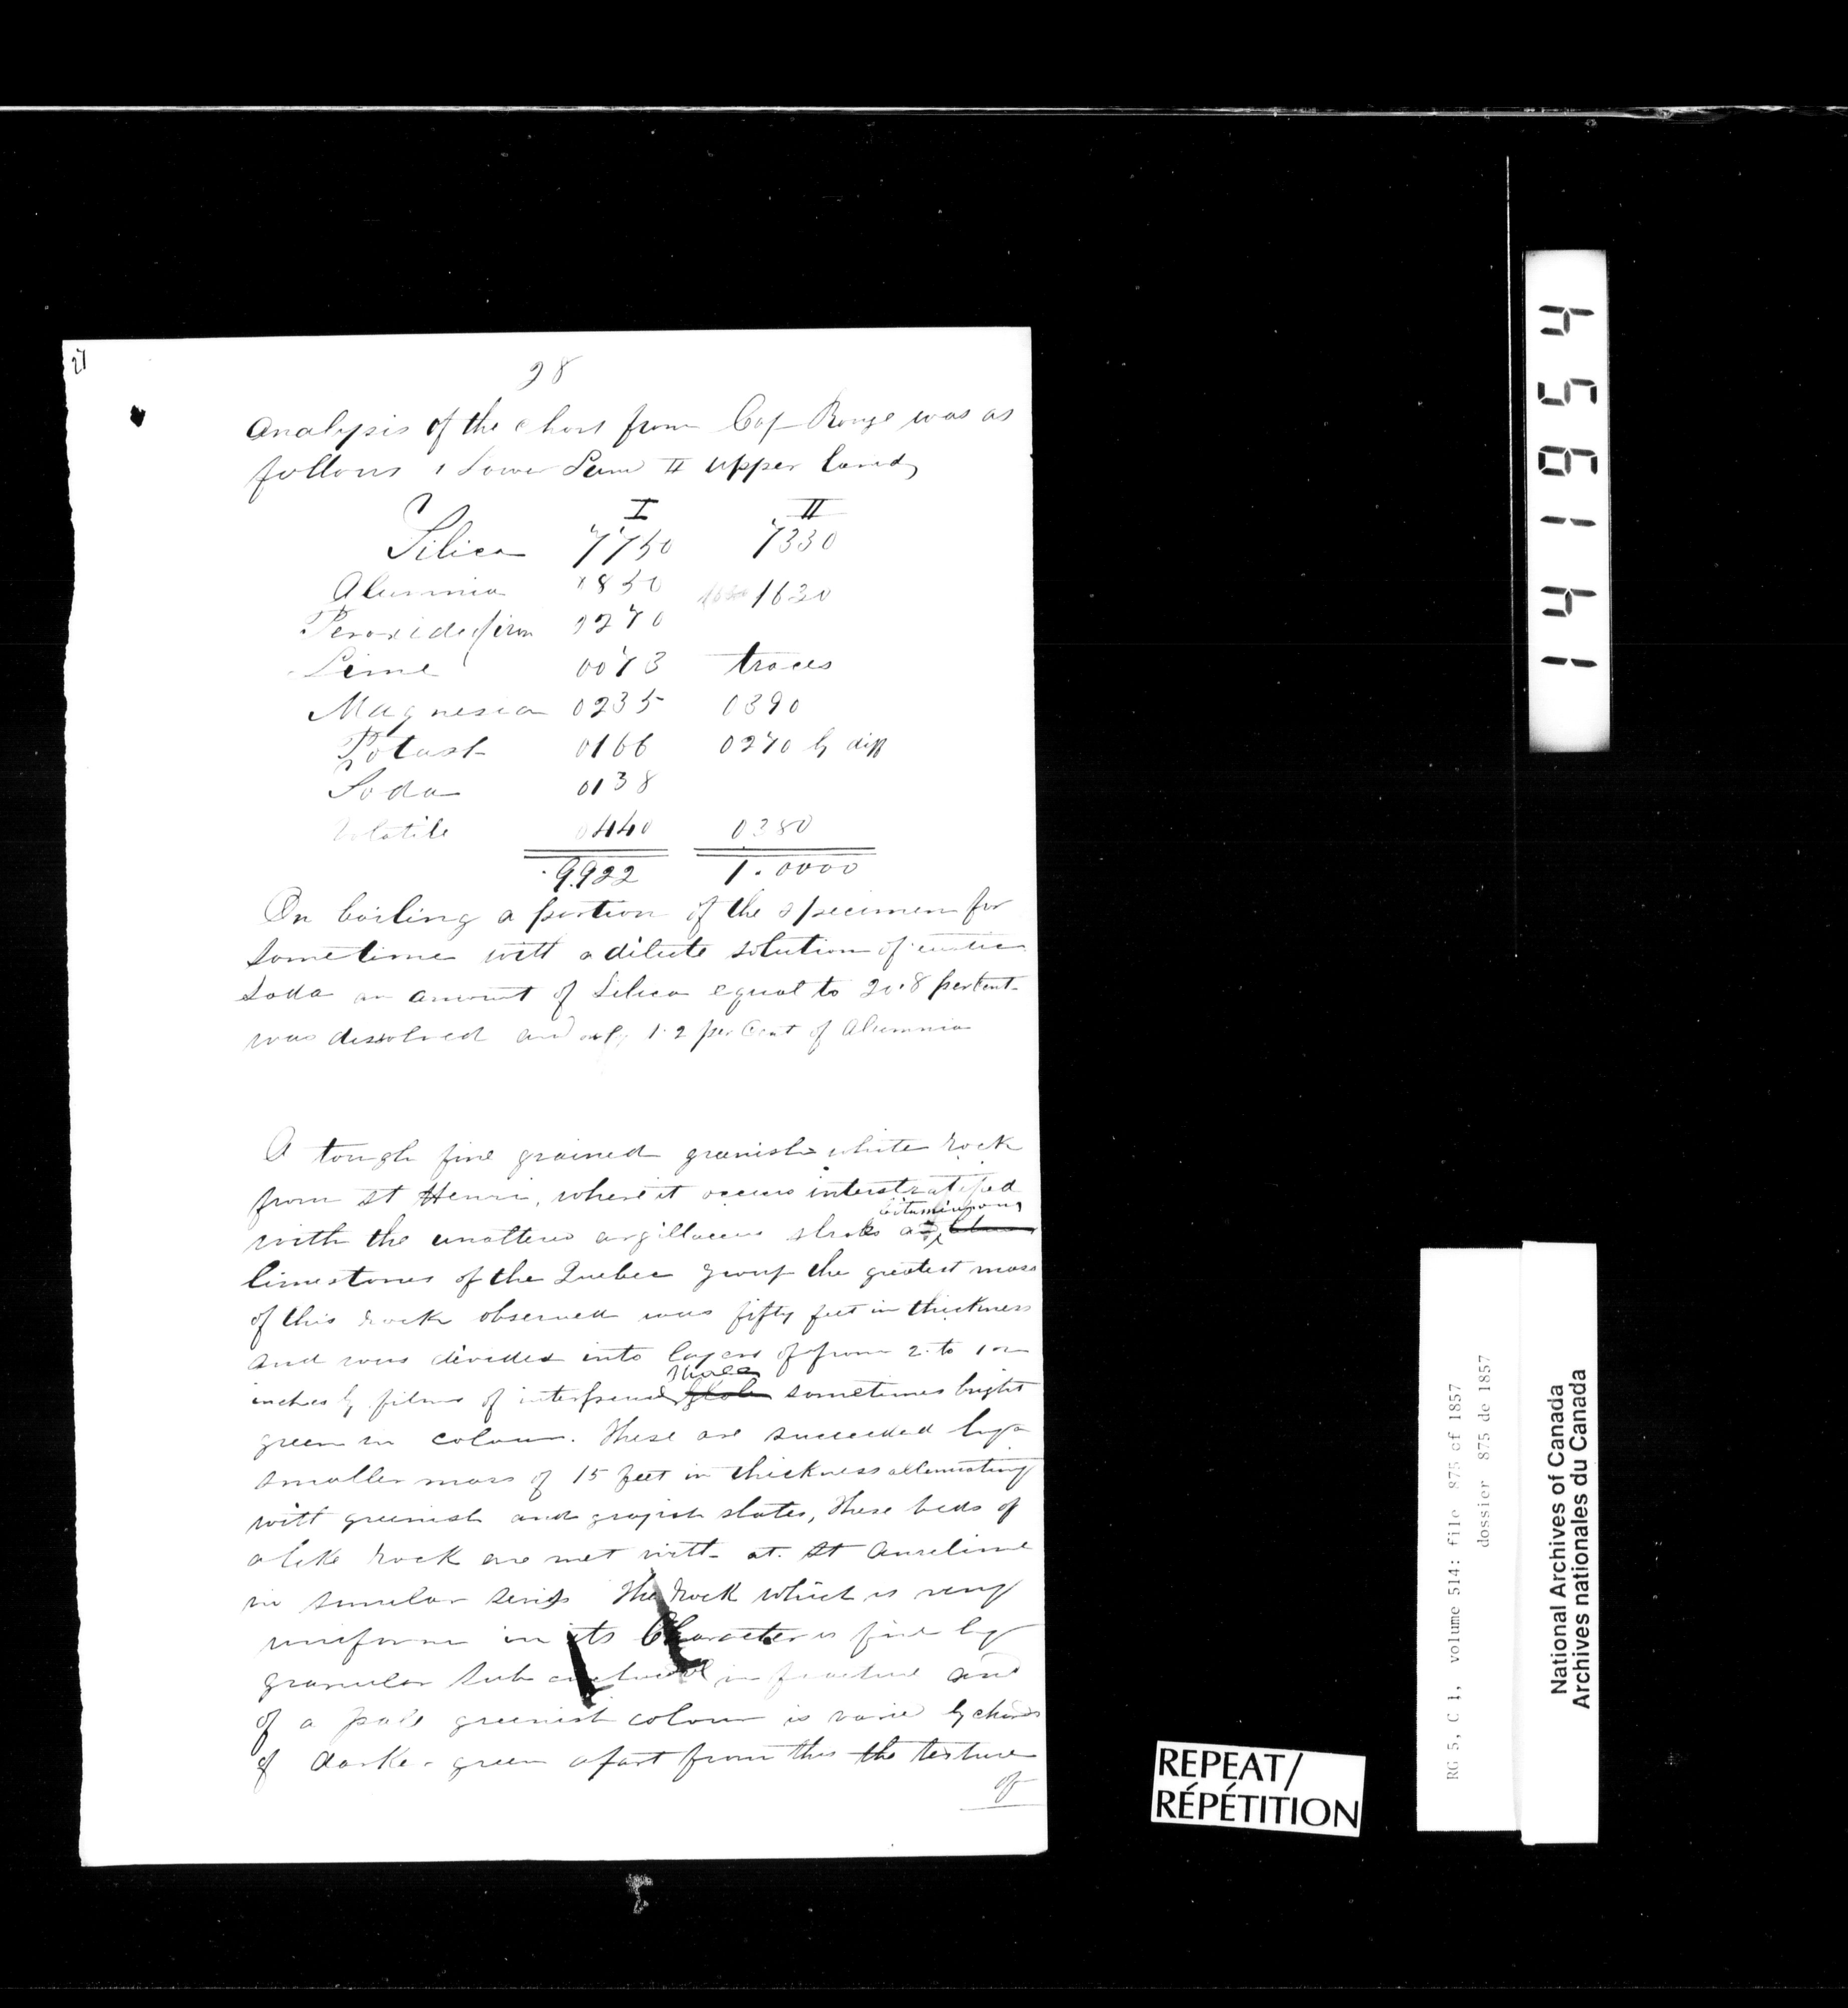 27
28
Analysis of the chert from Cap Rouge was as
follows I Lower Seam II upper band
I II
Silica 7750 7330
Alumina 1850 1630
Peroxide of iron 0270
Lime 0073 traces
Magnesia 0235 0390
Potash 0166 0270 by diff
Soda 0138
Volatile 0440 0380
.9922 1.0000
On boiling a portion of the specimen for
sometime with a dilute solution of caustic
soda an amount of Silica equal to 20.8 per Cent
was dissolved and only 1.2 per Cent of Alumina
A tough fine grained greenish white rock
from St Henri, where it occurs interstratified
bituminous
with the unaltered argillaceous
limestones of the Quebec group the greatest mass
of this rock observed was fifty feet in thickness
and was divided into layers of from 2 to
Shale
inches by films of sometimes bright
green in colour. These are succeeded by a
smaller mass of 15 feet in thickness alternating
with greenish and grayish slates, these beds of
a like rock are met with at St
in similar series The rock which is very
uniform in its Character is finely
granular sub in fracture and
of a pale greenish colour is varied by
of darker green apart from this the texture
of
141954
REPEAT/
RÉPÉTITION
RG 5, C 1, volume 514: file 875 of 1857
dossier 875 de 1857
National Archives of Canada
Archives nationales du Canada